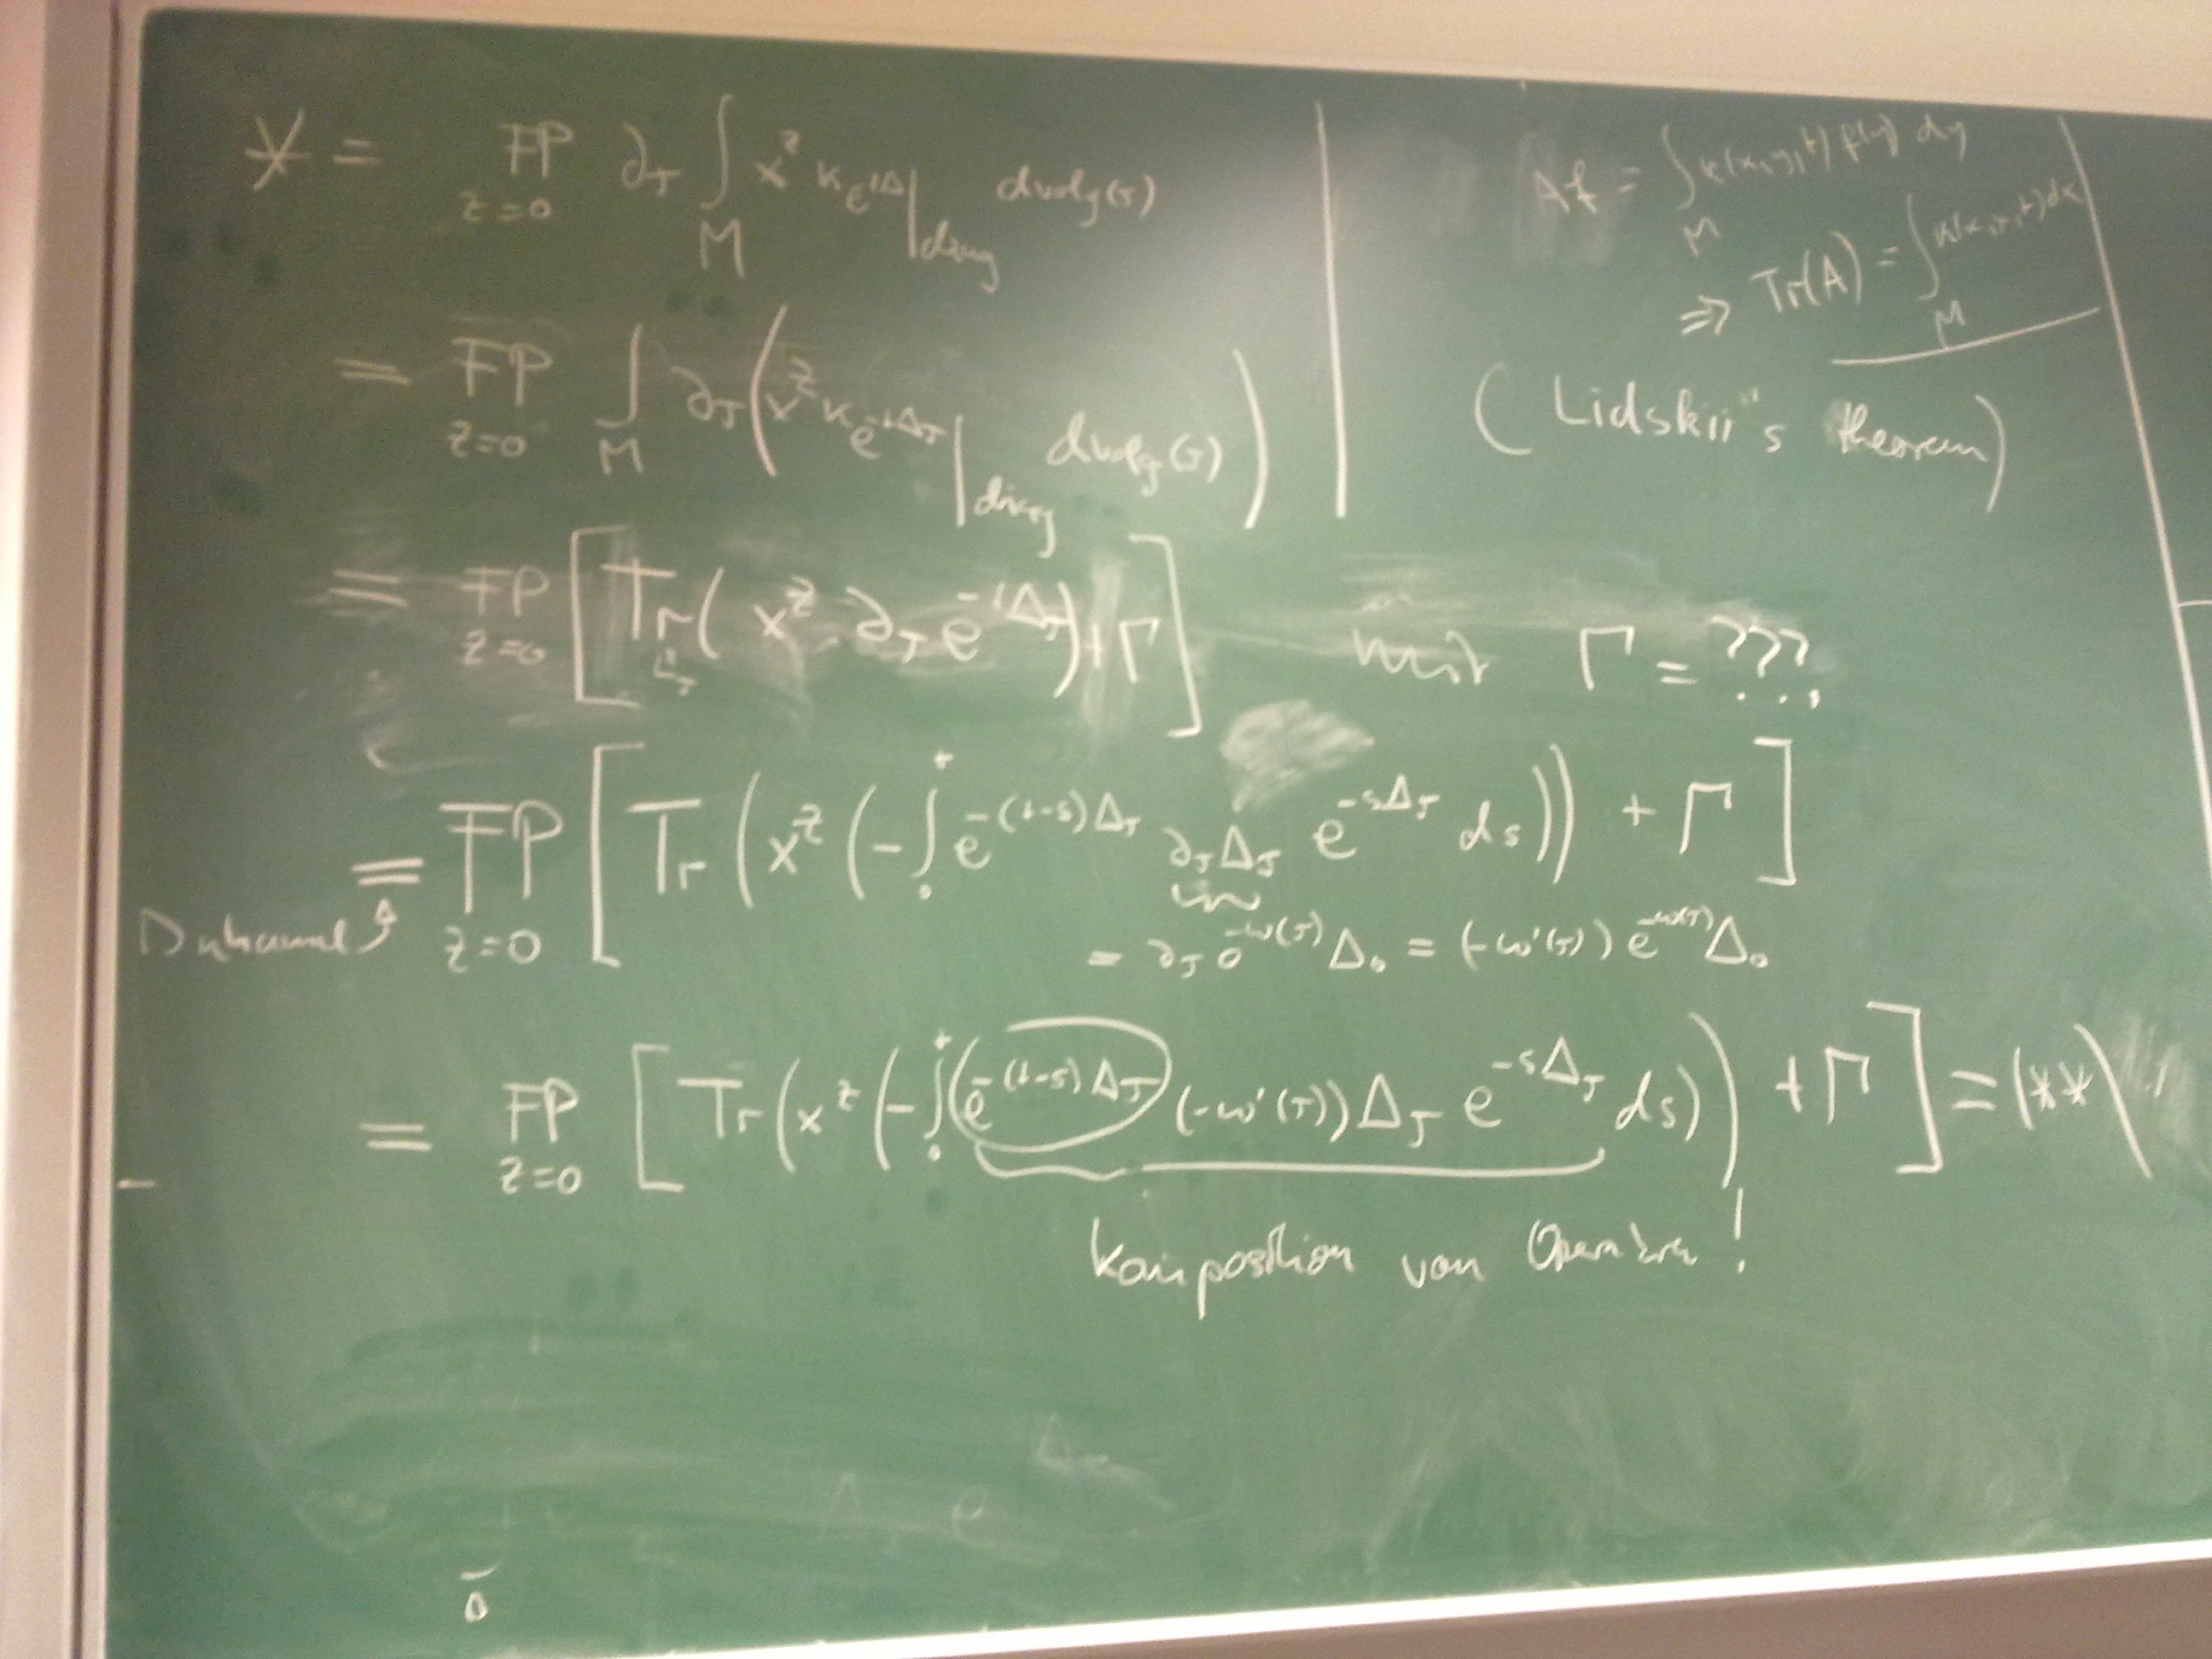 * = FP_{z=0} ∂_τ ∫_M x^z K_{e^{-tΔ}}|_{diag} dvol_{g(τ)}
= FP_{z=0} ∫_M ∂_τ ( x^z K_{e^{-tΔ_τ}}|_{diag} dvol_{g(τ)} )
= FP_{z=0} [ Tr_{L²_τ} ( x^z ∂_τ e^{-tΔ_τ} ) + Γ ] mit Γ = ???
= FP_{z=0} [ Tr ( x^z ( - ∫_0^t e^{-(t-s)Δ_τ} ∂_τ Δ_τ e^{-sΔ_τ} ds )) + Γ ]
Duhamel
= ∂_τ e^{-ω(τ)} Δ_0 = (-ω'(τ)) e^{-ω(τ)} Δ_0
= FP_{z=0} [ Tr ( x^z ( - ∫_0^t ( e^{-(t-s)Δ_τ} (-ω'(τ)) Δ_τ e^{-sΔ_τ} ds ) ) + Γ ] = (**)
Komposition von Operatoren!
Af = ∫_M K(x,y,t) f(y) dy
⇒ Tr(A) = ∫_M K(x,x,t) dx
(Lidskii"s theorem)